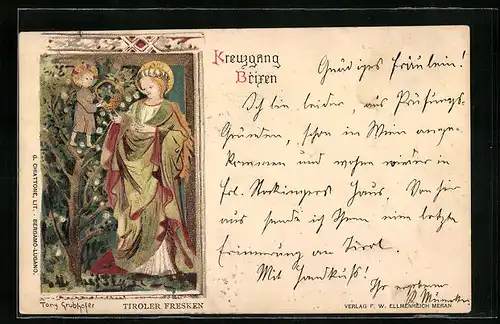 Kreuzgang
Brixen
Gnädiges Fräulein!
Ich bin leider, aus Prüfungs-
Gründen, schon in Wien ange-
kommen und wohne wieder in
Frl. Haus. Von hier
aus sende ich Ihnen eine letzte
Erinnerung an Tirol.
Mit Handkuß!
Ihr ergebener
G. CHIATTONE, LIT. - BERGAMO-LUGANO.
Tony Grubhofer
TIROLER FRESKEN
VERLAG F. W. ELLMENREICH MERAN